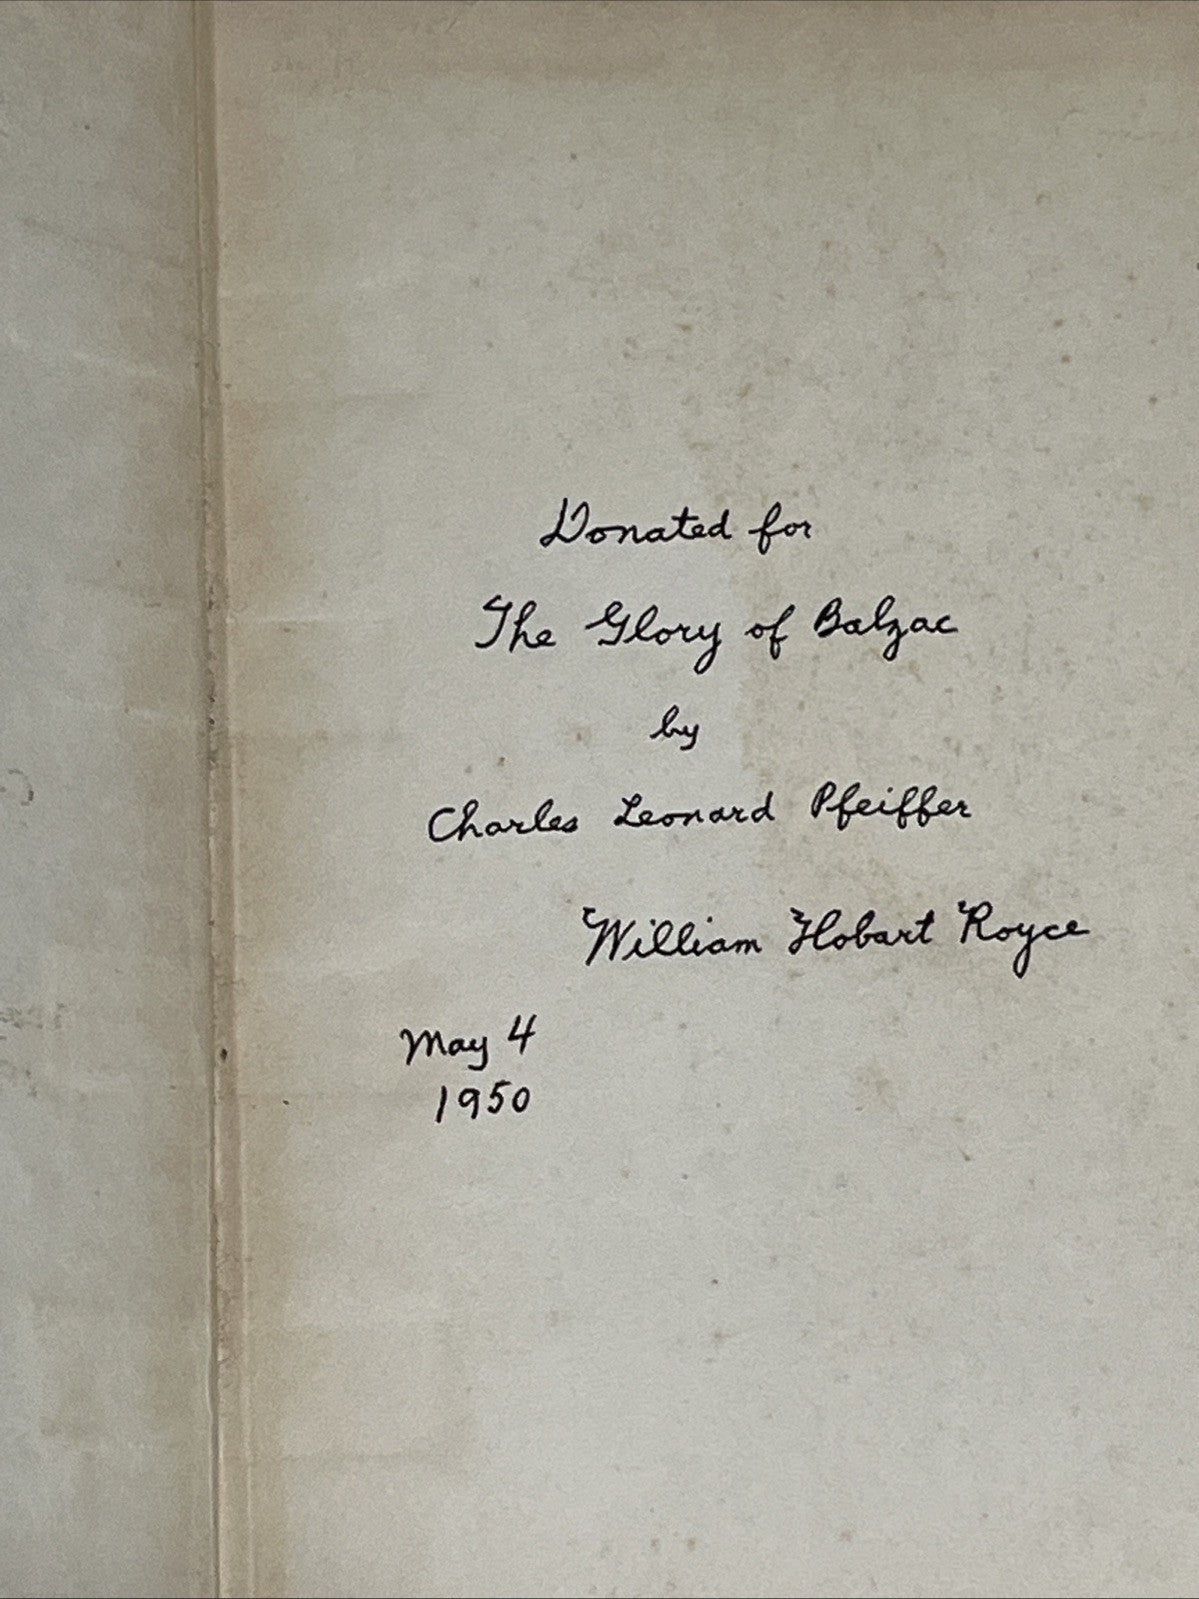 Donated for
The Glory of Balzac
by
Charles Leonard Pfeiffer
William Hobart Royce
May 4
1950